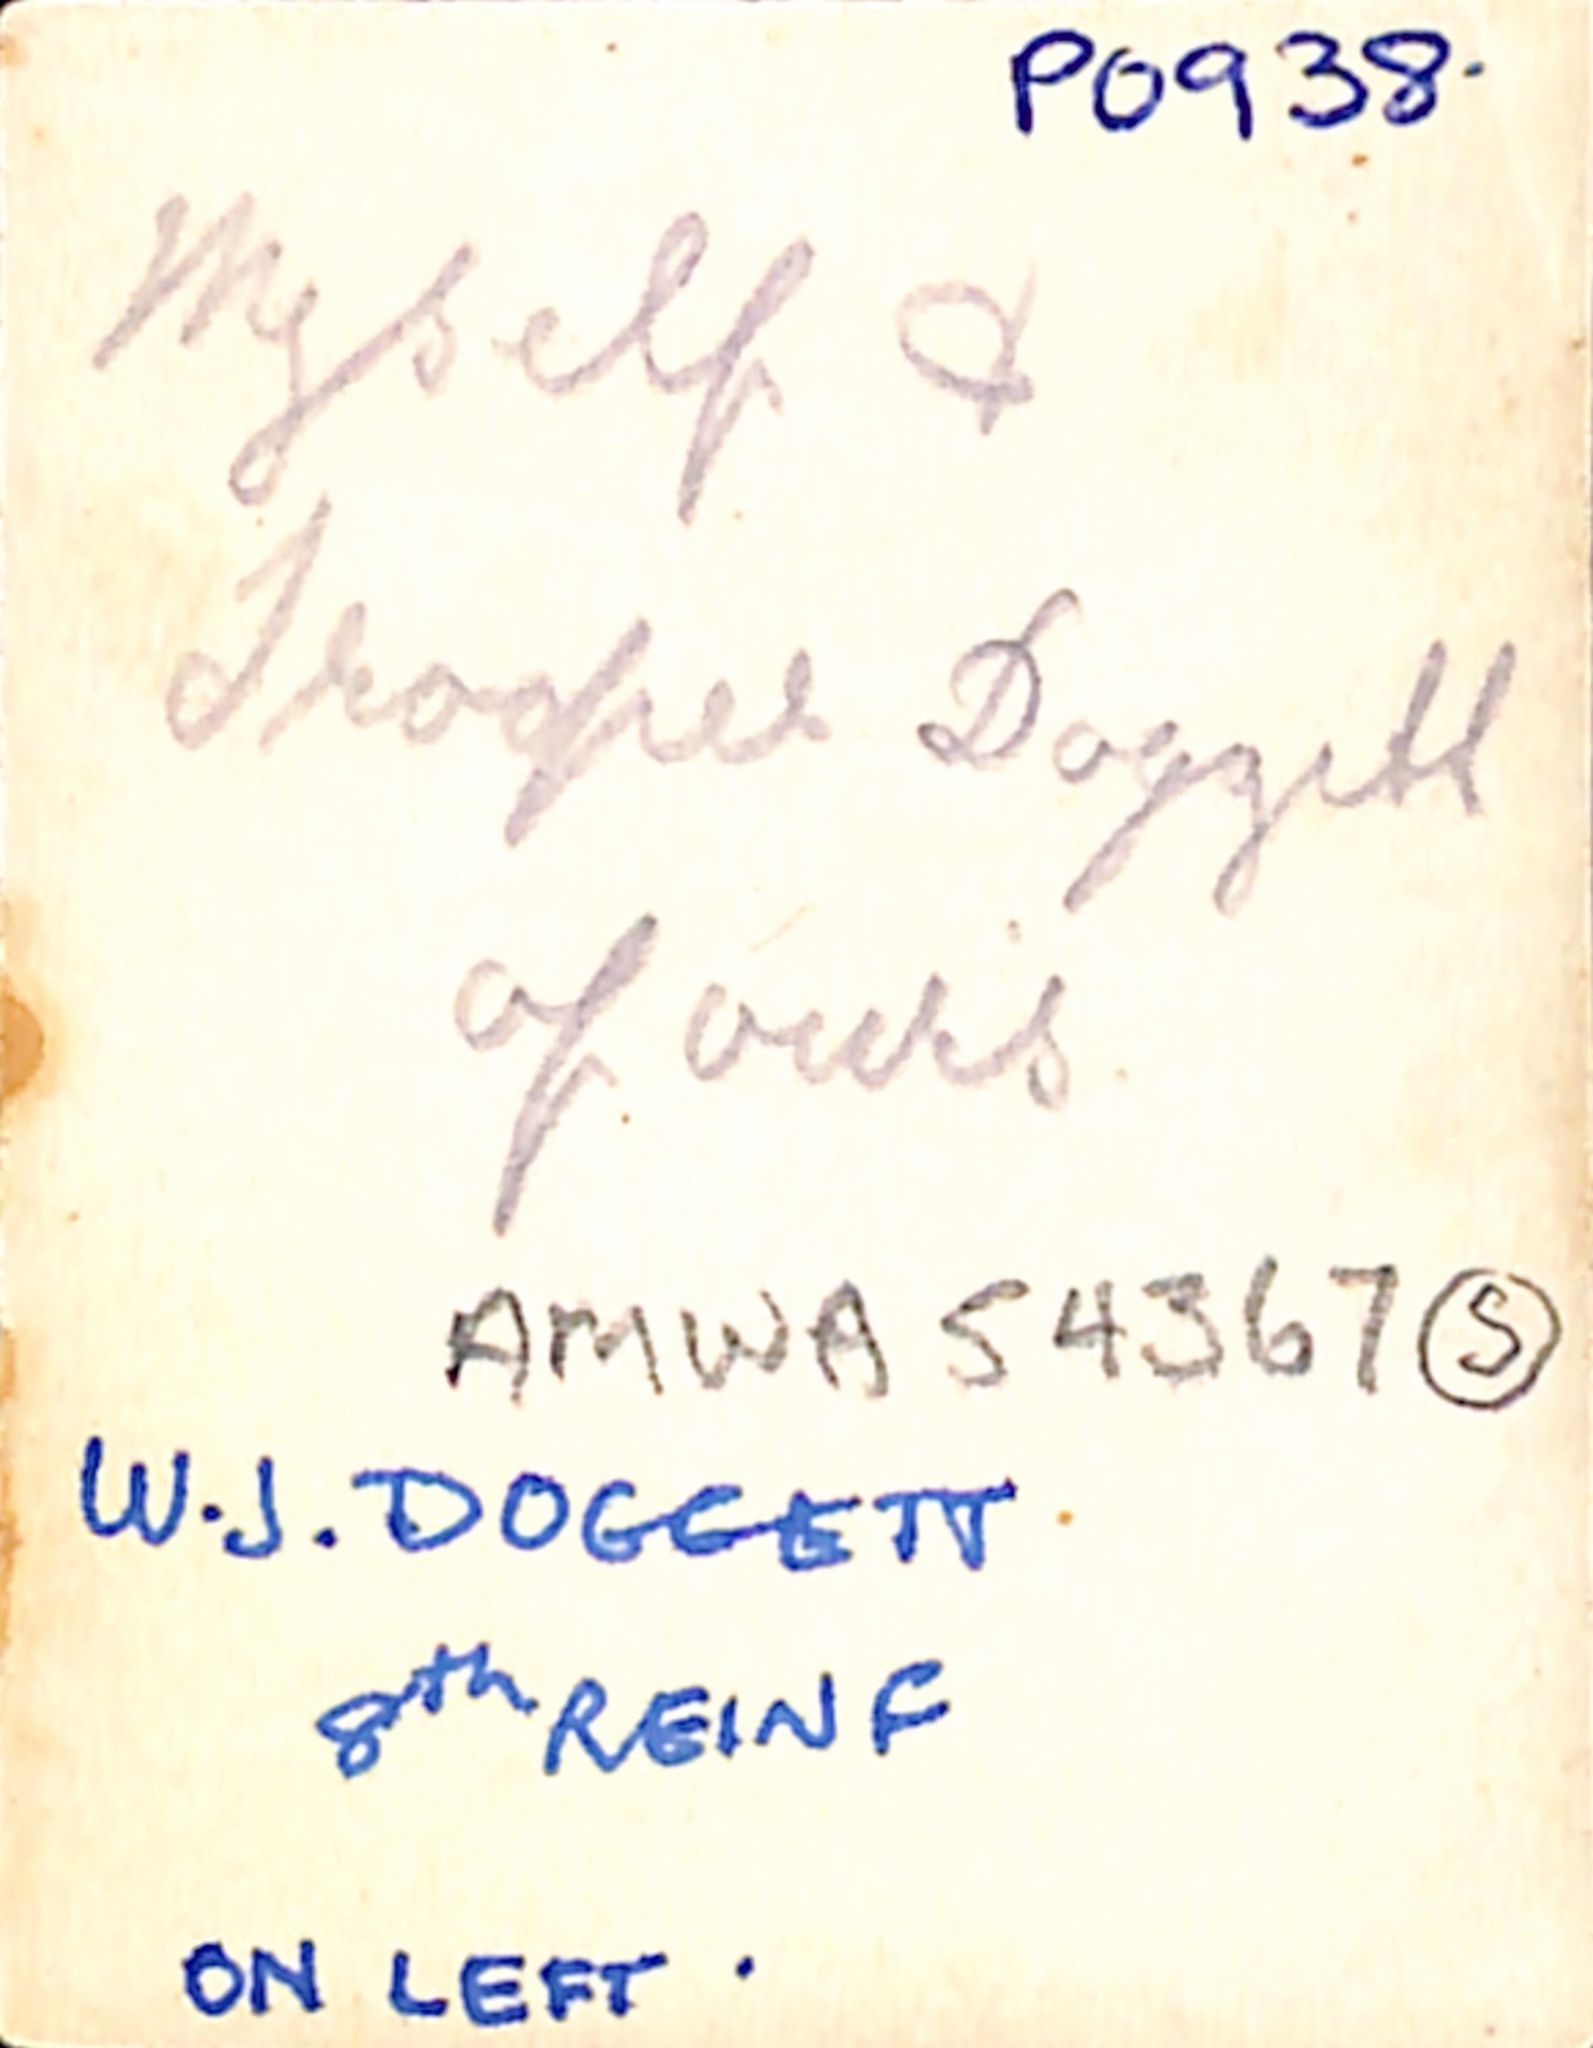 P0938.
Myself &
Trooper Doggett
of ours.
AMWA 54367 (S)
W.J. DOGGETT
8th REINF
ON LEFT.